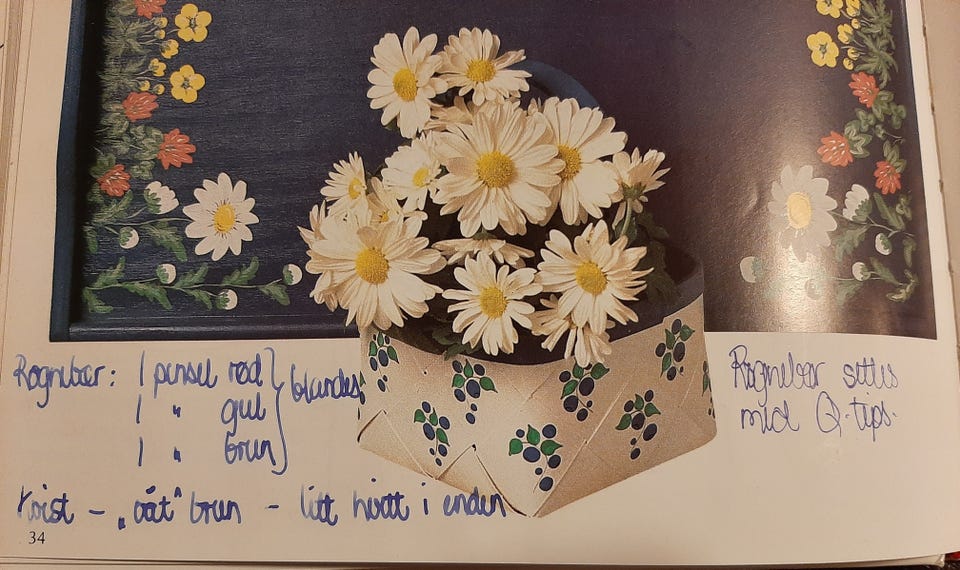 Rognebær: 1 pensel rød } blandes
1 " gul
1 " brun
Rognebær settes
med Q-tips.
Kvist – „våt" brun – litt hvitt i enden
34